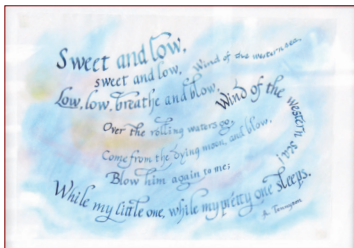 Sweet and low,
sweet and low, Wind of the western sea,
Low, low, breathe and blow,
Wind of the western sea!
Over the rolling waters go,
Come from the dying moon, and blow,
Blow him again to me;
While my little one, while my pretty one sleeps.
A. Tennyson